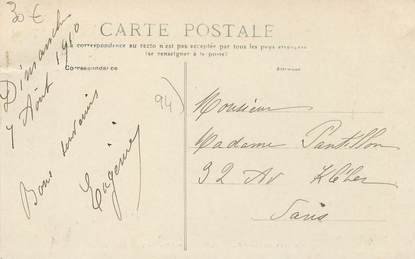 30€
CARTE POSTALE
La correspondance au recto n'est pas acceptée par tous les pays étrangers
(se renseigner à la poste)
Correspondance
Adresse
Dimanche
7 Août 1910
Bons
Eugénie
94)
Monsieur
Madame Pantillon
32 Av Kléber
Paris